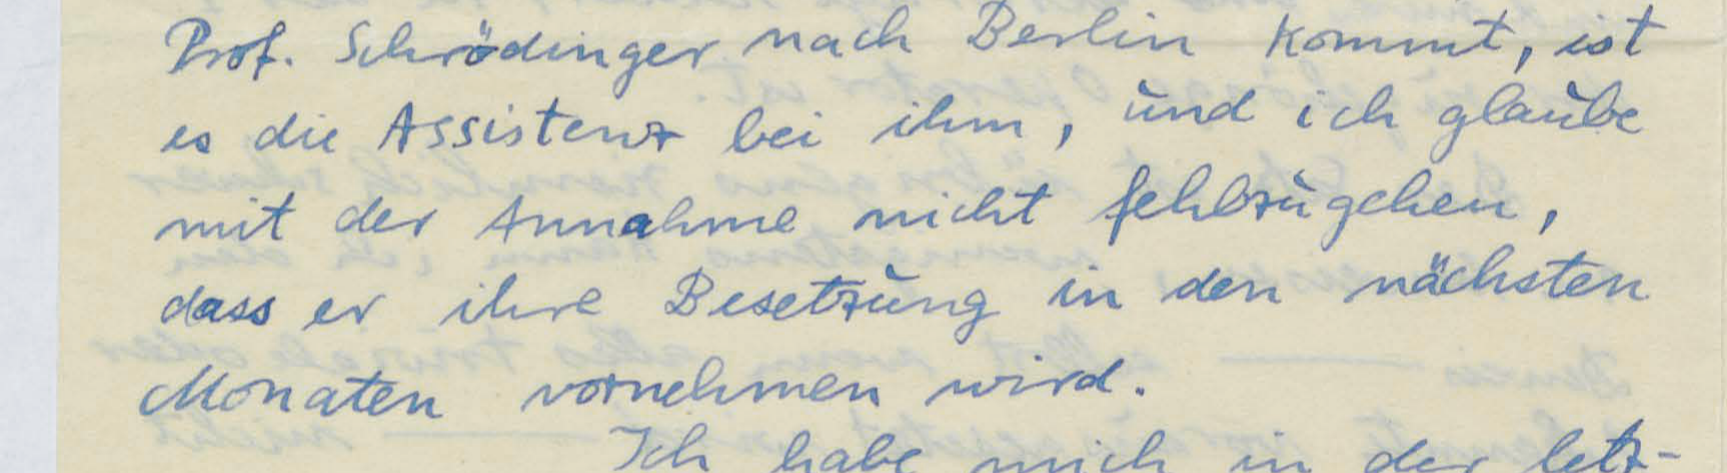 Prof. Schrödinger nach Berlin kommt, ist
es die Assistenz bei ihm, und ich glaube
mit der Annahme nicht fehlzugehen,
dass er ihre Besetzung in den nächsten
Monaten vornehmen wird.
Ich habe mich in der letz-